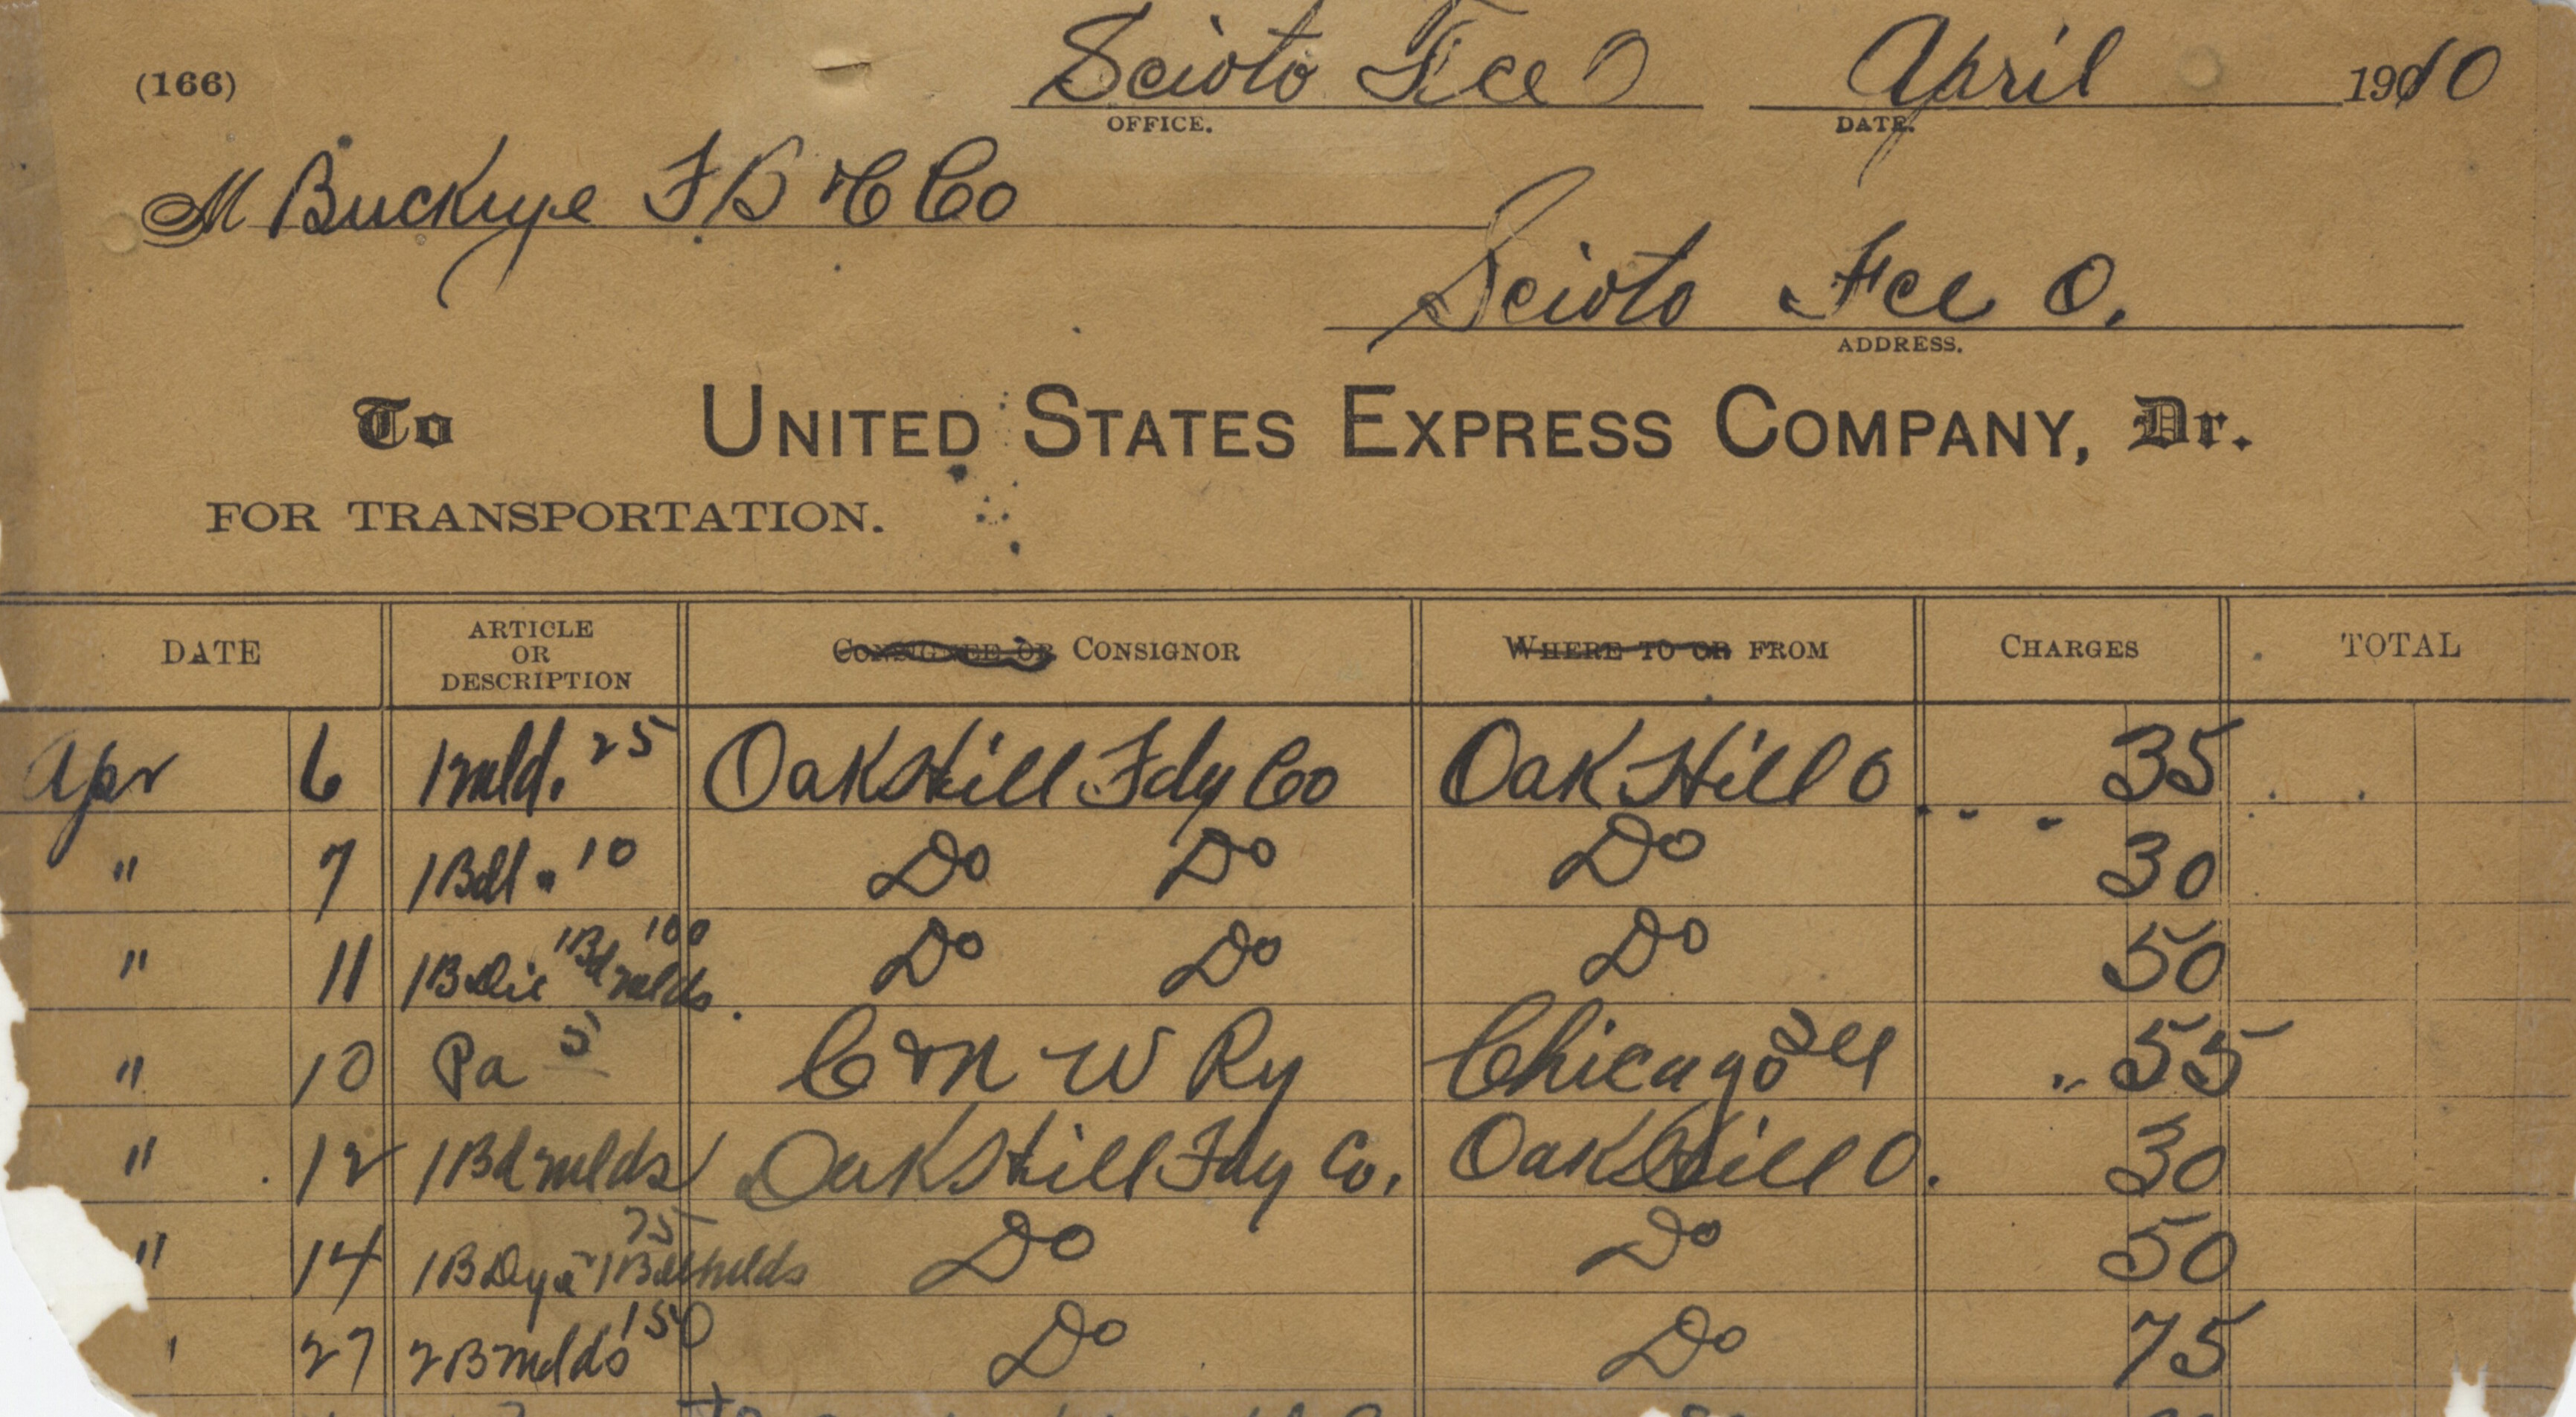 (166) Scioto Fce O April 1910
OFFICE. DATE.
M Buckeye F B & C Co
Scioto Fce O.
ADDRESS.
To UNITED STATES EXPRESS COMPANY, Dr.
FOR TRANSPORTATION.
DATE ARTICLE OR DESCRIPTION CONSIGNEE OR CONSIGNOR WHERE TO OR FROM CHARGES TOTAL
Apr 6 1 mld. 25 Oak Hill Fdy Co Oak Hill O 35
" 7 1 Bdl " 10 Do Do Do 30
" 11 1 B Die 1 Bd mlds 100 Do Do Do 50
" 10 Pa 5 C & N W Ry Chicago Ill 55
" 12 1 Bd mlds Oak Hill Fdy Co. Oak Hill O. 30
" 14 1 B 1 mlds 75 Do Do 50
" 27 2 B mlds 150 Do Do 75